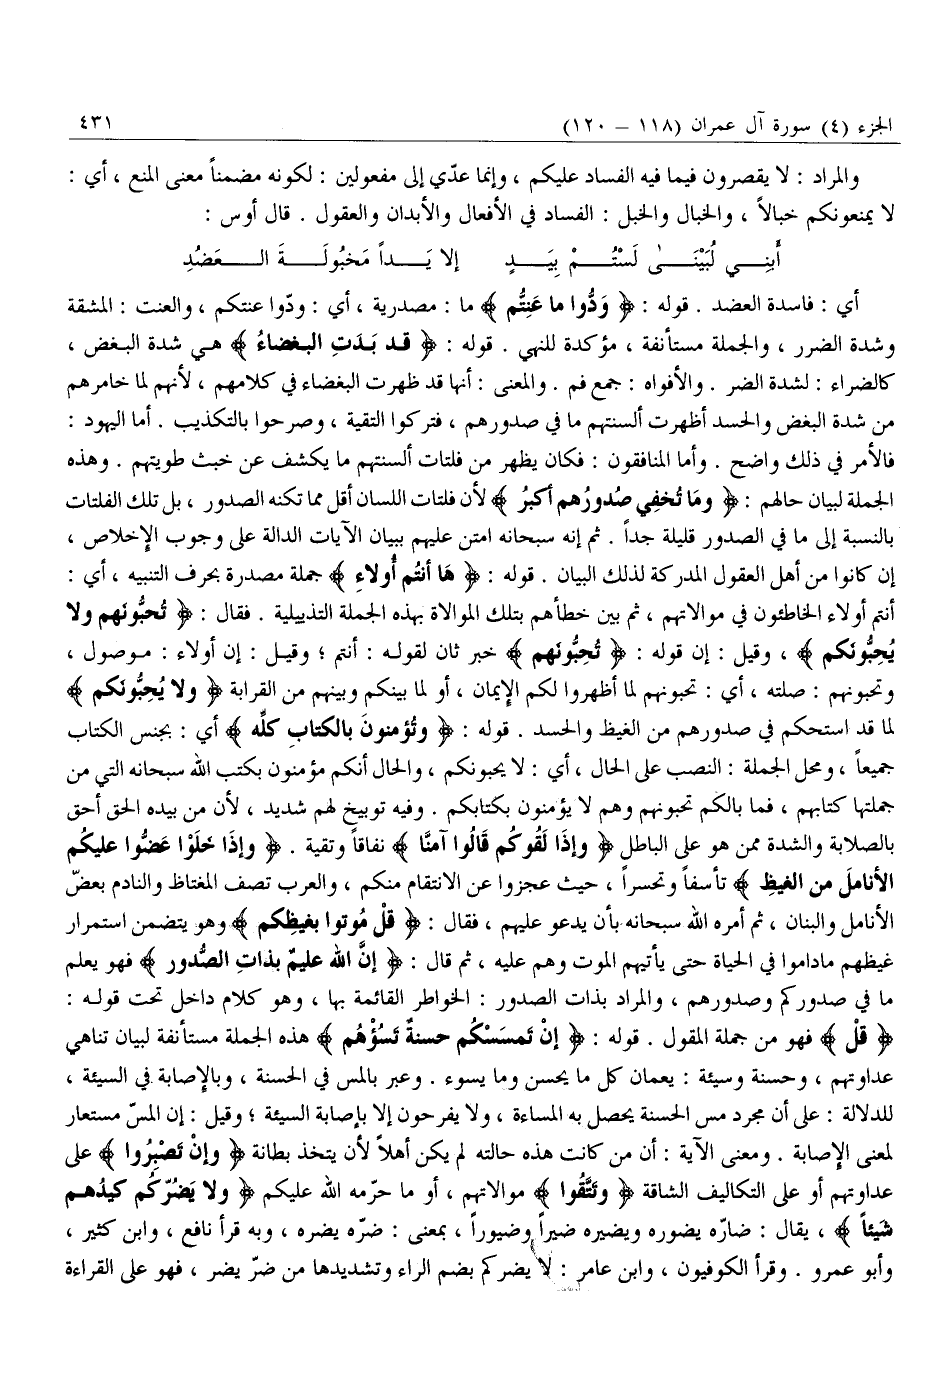 الجزء (٤) سورة آل عمران (١١٨ – ١٢٠) ٤٣١
والمراد : لا يقصرون فيما فيه الفساد عليكم ، وإنما عدّي إلى مفعولين : لكونه مضمناً معنى المنع ، أي :
لا يمنعونكم خبالاً ، والخبال والخبل : الفساد في الأفعال والأبدان والعقول . قال أوس :
أَبنِـي لُبَيْنَـىٰ لَسْتُـمْ بِيَـدٍ إلا يَـداً مَخبُولَـةَ العَـضُدِ
أي : فاسدة العضد . قوله : ﴿ وَدُّوا ما عَنِتُّم ﴾ ما : مصدرية ، أي : ودّوا عنتكم ، والعنت : المشقة
وشدة الضرر ، والجملة مستأنفة ، مؤكدة للنهي . قوله : ﴿ قـد بَدَتِ البـغضاءُ ﴾ هـي شدة البـغض ،
كالضراء : لشدة الضر . والأفواه : جمع فم . والمعنى : أنها قد ظهرت البغضاء في كلامهم ، لأنهم لما خامرهم
من شدة البغض والحسد أظهرت ألسنتهم ما في صدورهم ، فتركوا التقية ، وصرحوا بالتكذيب . أما اليهود :
فالأمر في ذلك واضح . وأما المنافقون : فكان يظهر من فلتات ألسنتهم ما يكشف عن خبث طويتهم . وهذه
الجملة لبيان حالهم : ﴿ ومَا تُخفِي صُدورُهم أكبرُ ﴾ لأن فلتات اللسان أقل مما تكنه الصدور ، بل تلك الفلتات
بالنسبة إلى ما في الصدور قليلة جداً . ثم إنه سبحانه امتن عليهم ببيان الآيات الدالة على وجوب الإخلاص ،
إن كانوا من أهل العقول المدركة لذلك البيان . قوله : ﴿ هَا أنتُم أُولاءِ ﴾ جملة مصدرة بحرف التنبيه ، أي :
أنتم أولاء الخاطئون في موالاتهم ، ثم بين خطأهم بتلك الموالاة بهذه الجملة التذييلية . فقال : ﴿ تُحبُّونَهم ولا
يُحِبُّونَكم ﴾ ، وقيل : إن قوله : ﴿ تُحِبُّونَهم ﴾ خبر ثان لقولـه : أنتم ؛ وقيـل : إن أولاء : مـوصول ،
وتحبونهم : صلته ، أي : تحبونهم لما أظهروا لكم الإيمان ، أو لما بينكم وبينهم من القرابة ﴿ ولا يُحِبُّونَكم ﴾
لما قد استحكم في صدورهم من الغيظ والحسد . قوله : ﴿ وتُؤمنونَ بالكتابِ كلِّه ﴾ أي : بجنس الكتاب
جميعاً ، ومحل الجملة : النصب على الحال ، أي : لا يحبونكم ، والحال أنكم مؤمنون بكتب الله سبحانه التي من
جملتها كتابهم ، فما بالكم تحبونهم وهم لا يؤمنون بكتابكم . وفيه توبيخ لهم شديد ، لأن من بيده الحق أحق
بالصلابة والشدة ممن هو على الباطل ﴿ وإذَا لَقُوكُم قَالُوا آمنَّا ﴾ نفاقاً وتقية . ﴿ وإذَا خَلَوْا عَضُّوا عليكُم
الأناملَ من الغيظِ ﴾ تأسفاً وتحسراً ، حيث عجزوا عن الانتقام منكم ، والعرب تصف المغتاظ والنادم بعضّ
الأنامل والبنان ، ثم أمره الله سبحانه بأن يدعو عليهم ، فقال : ﴿ قلْ مُوتوا بغيظِكم ﴾ وهو يتضمن استمرار
غيظهم ماداموا في الحياة حتى يأتيهم الموت وهم عليه ، ثم قال : ﴿ إنَّ الله عليمٌ بذاتِ الصُّدور ﴾ فهو يعلم
ما في صدوركم وصدورهم ، والمراد بذات الصدور : الخواطر القائمة بها ، وهو كلام داخل تحت قولـه :
﴿ قلْ ﴾ فهو من جملة المقول . قوله : ﴿ إنْ تَمسَسْكُم حسنةٌ تَسُؤْهُم ﴾ هذه الجملة مستأنفة لبيان تناهي
عداوتهم ، وحسنة وسيئة : يعمان كل ما يحسن وما يسوء . وعبر بالمس في الحسنة ، وبالإصابة في السيئة ،
للدلالة : على أن مجرد مس الحسنة يحصل به المساءة ، ولا يفرحون إلا بإصابة السيئة ؛ وقيل : إن المسّ مستعار
لمعنى الإصابة . ومعنى الآية : أن من كانت هذه حالته لم يكن أهلاً لأن يتخذ بطانة ﴿ وإنْ تَصْبِرُوا ﴾ على
عداوتهم أو على التكاليف الشاقة ﴿ وتَتَّقُوا ﴾ موالاتهم ، أو ما حرّمه الله عليكم ﴿ ولا يَضُرّكم كيدُهـم
شَيئاً ﴾ ، يقال : ضارّه يضوره ويضيره ضيراً وضيوراً ، بمعنى : ضرّه يضره ، وبه قرأ نافع ، وابن كثير ،
وأبو عمرو . وقرأ الكوفيون ، وابن عامر : لا يضركم بضم الراء وتشديدها من ضرّ يضر ، فهو على القراءة